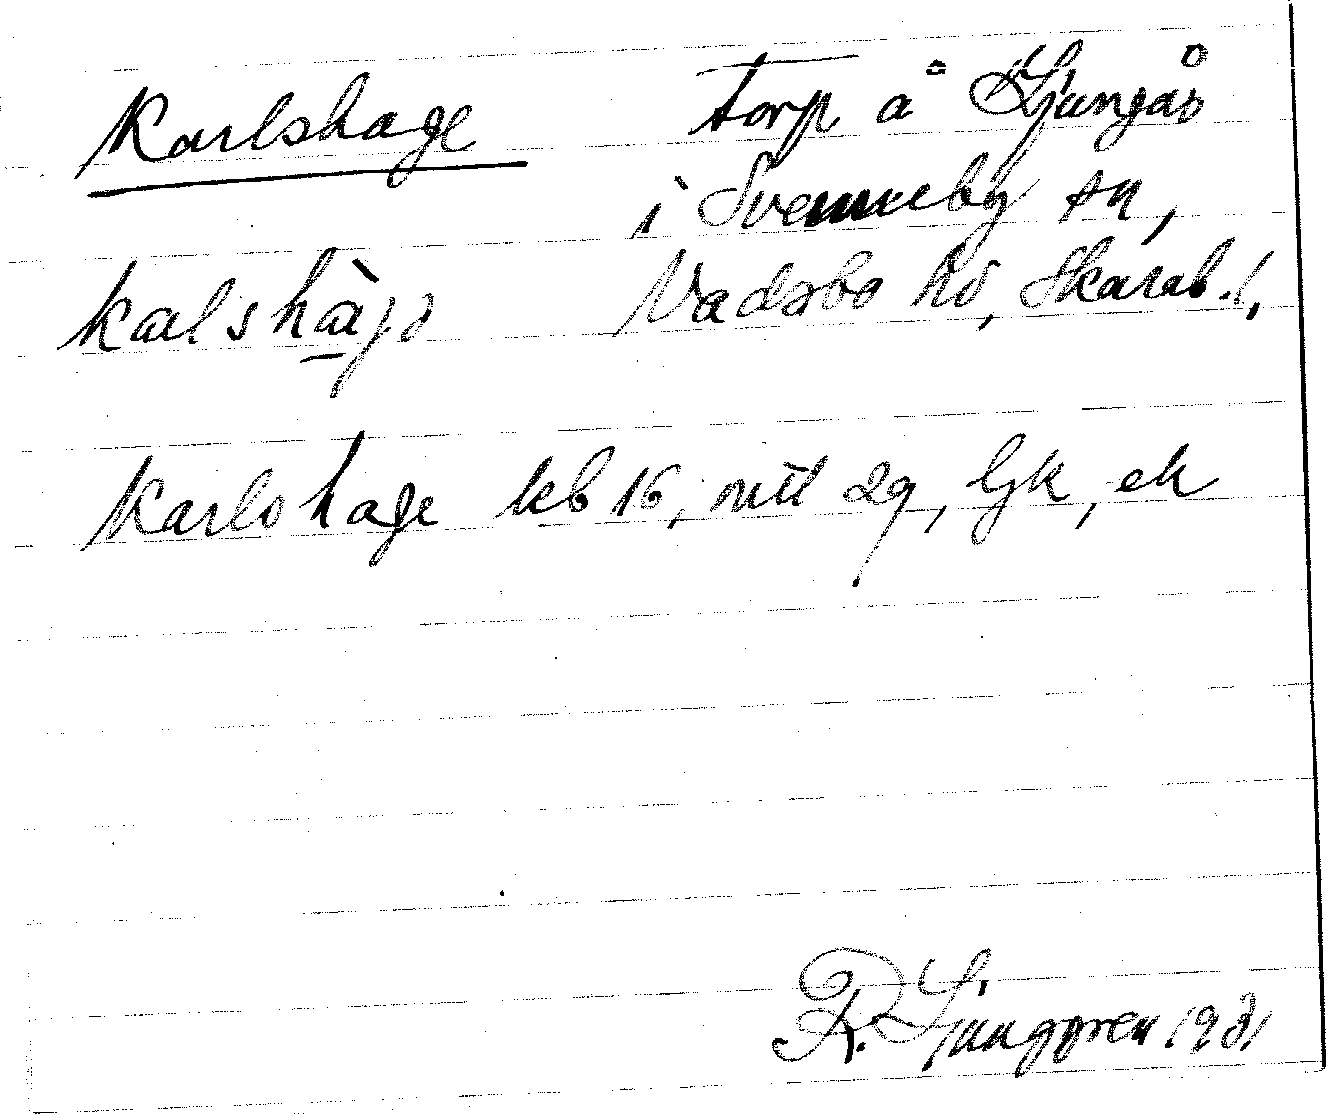 Karlshage
Torp å Ljungås
i Svenneby sn,
Vadsbo hd, Skarab. l.
Karlshage kb 16, mtl 29, Gk, ek
R. Ljunggren 1931